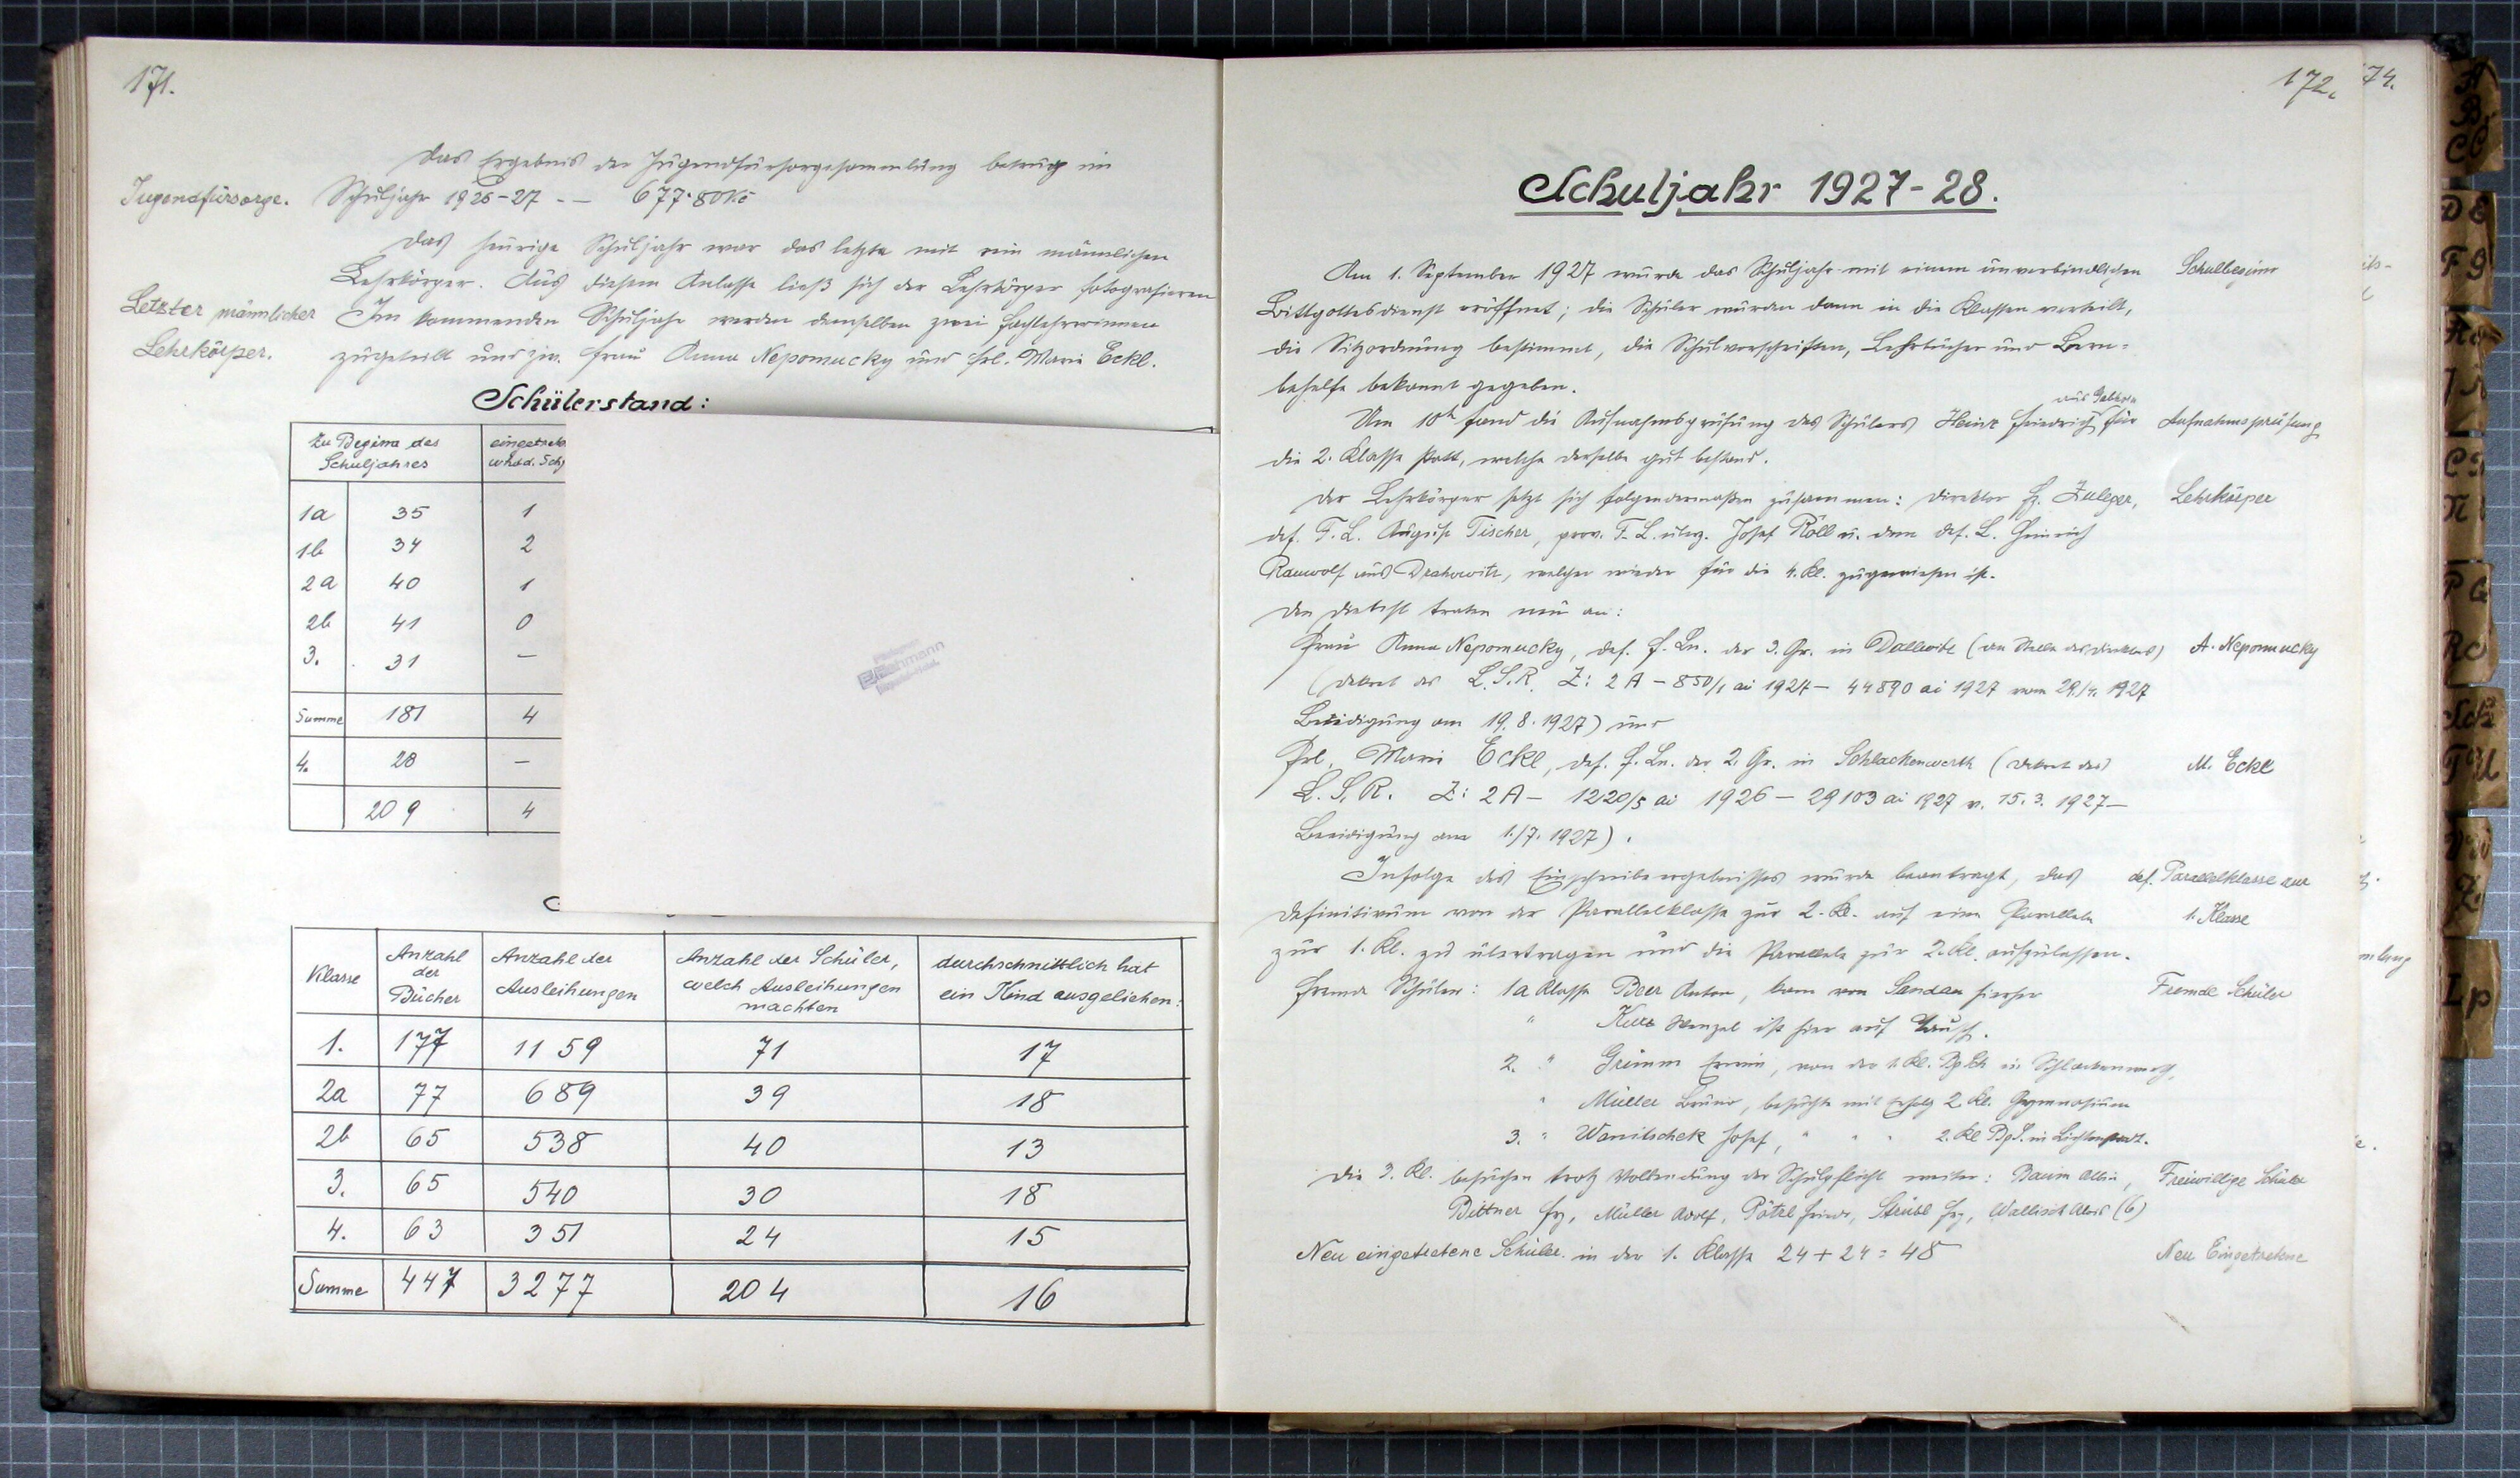 171.
Das Ergebnis der Jugendfürsorgesammlung betrug im
Jugendfürsorge.
Schuljahr 1926-27 - — 677·80 Kč
Das heurige Schuljahr war das letzte mit rein männlichen
Lehrkörper. Aus diesem Anlasse ließ sich der Lehrkörper fotografieren
Letzter männlicher
Lehrkörper.
Im kommenden Schuljahre werden demselben zwei Fachlehrerinnen
zugeteilt und zw. Frau Anna Nepomucky und Frl. Marie Eckl.
Schülerstand:
Zu Beginn des
Schuljahres
1a 35 1
1b 34 2
2a 40 1
2b 41 0
3. 31 —
Summe 181 4
4. 28 —
209 4
Klasse
Anzahl
der
Bücher
Anzahl der
Ausleihungen
Anzahl der Schüler,
welch Ausleihungen
machten
durchschnittlich hat
ein Kind ausgeliehen:
1. 177 1159 71 17
2a 77 689 39 18
2b 65 538 40 13
3. 65 540 30 18
4. 63 351 24 15
Summe 447 3277 204 16
172.
74.
Schuljahr 1927-28.
Am 1. September 1927 wurde das Schuljahr mit einem unverbindlichen
Schulbeginn
Bittgottesdienst eröffnet; die Schüler wurden dann in die Klassen verteilt,
die Sitzordnung bestimmt, die Schulvorschriften, Lehrbücher und Lern-
behelfe bekannt gegeben.
Um 10h fand die Aufnahmsprüfung des Schülers Heinz Friedrich aus für
Aufnahmsprüfung
die 2. Klasse statt, welche derselbe gut bestand.
Der Lehrkörper setzt sich folgendermaßen zusammen: Direktor Fz. Zuleger,
Lehrkörper
def. F. L. August Tischer, prov. F. L. Josef Röll u. dem def. L. Heinrich
Rauwolf aus Drahowitz, welcher wieder für die 4. Kl. zugewiesen ist.
Den Dienst traten neu an:
Frau Anna Nepomucky, def. F. Ln. der 3. Gr. in Dallwitz (an Stelle des Direktors)
A. Nepomucky
(Dekret des L.S.R. Z: 2 A - 850/1 ai 1927 - 44890 ai 1927 vom 29./4. 1927
Beeidigung am 19.8.1927) und
Frl. Marie Eckl, def. F. Ln. der 2. Gr. in Schlackenwerth (Dekret des
M. Eckl
L.S.R. Z: 2 A - 1220/5 ai 1926 - 29103 ai 1927 v. 15.3.1927 -
Beeidigung am 1./7. 1927).
Infolge des Einschreibeergebnisses wurde beantragt, das
def. Parallelklasse zur
1. Klasse
Definitivum von der Parallelklasse zur 2. Kl. auf eine Parallele
zur 1. Kl. zu übertragen und die Parallele zur 2. Kl. aufzulassen.
Fremde Schüler: 1a Klasse Beer Anton, kam von Sandau hierher
Fremde Schüler
" Kurz Wenzel ist hier auf Tausch.
2. " Grimm Erwin, von der 1. Kl. in Schlackenwerth,
" Müller Bruno, besuchte mit Erfolg 2. Kl. Gymnasium
3. " Wanitschek Josef, " " " 2. Kl. in Lichtenstadt.
Die 3. Kl. besuchen trotz Vollendung der Schulpflicht weiter: Baum
Freiwillige Schüler
Bittner Fz, Müller Adolf, Pötzl Friedr, Fz, Wallisch Alois (6)
Neu eingetretene Schüler in der 1. Klasse 24 + 24 = 48
Neu Eingetretene